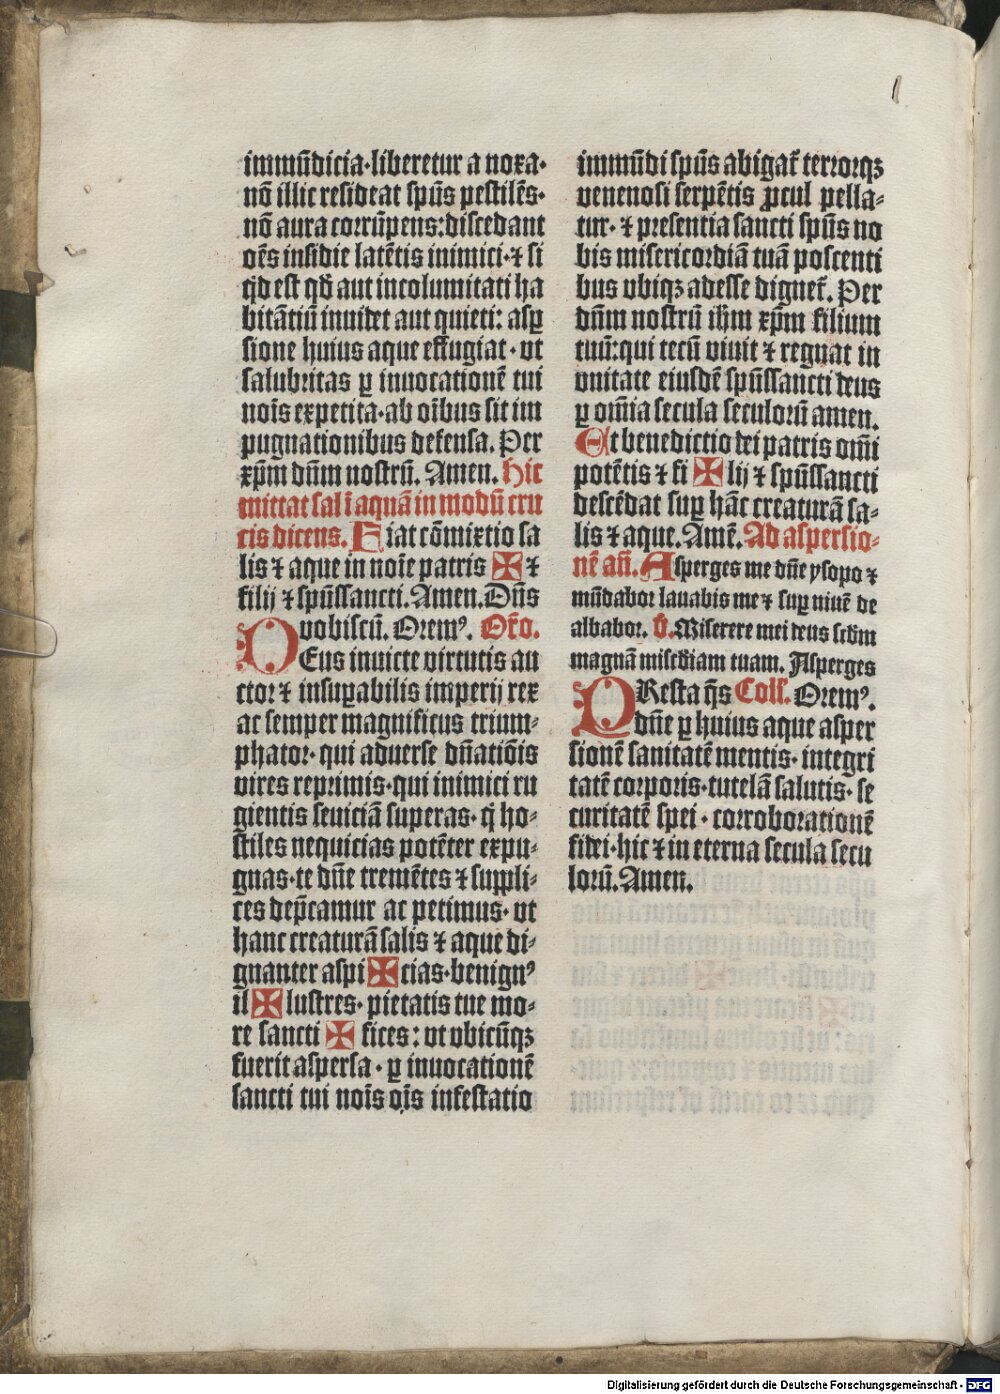 immūdicia·liberetur a noxa·
nō illic resideat spūs pestilēs·
nō aura corrūpens: discedant
oēs insidie latētis inimici·⁊ si
qd̄ est qd̄ aut incolumitati ha
bitātiū inuidet aut quieti: asꝑ
sione huius aque effugiat·vt
salubritas ꝑ inuocationē tui
nois̄ expetita·ab oībus sit im
pugnationibus defensa. Per
xp̄m dn̄m nostrū. Amen. Hic
mittat sal ī aquā in modū cru
cis dicens. Fiat cōmixtio sa
lis ⁊ aque in noīe patris ✠ ⁊
filij ⁊ spūssancti. Amen. Dn̄s
vobiscū. Oremꝰ. Or̄o.
DEus inuicte virtutis au
ctor ⁊ insuꝑabilis imperij rex
ac semper magnificus trium⸗
phator·qui aduerse dn̄atiōis
vires reprimis·qui inimici ru
gientis seuiciā superas·q̄ ho⸗
stiles nequicias potēter expu⸗
gnas·te dn̄e tremētes ⁊ suppli⸗
ces dep̄camur ac petimus·vt
hanc creaturā salis ⁊ aque di⸗
gnanter aspi ✠ cias·benignꝰ
il ✠ lustres·pietatis tue mo⸗
re sancti ✠ fices: vt vbicūqꝫ
fuerit aspersa·ꝑ inuocationē
sancti tui nois̄ ois̄ infestatio
immūdi spūs abigat̄ terrorqꝫ
venenosi serpētis ꝓcul pella⸗
tur·⁊ presentia sancti spūs no
bis misericordiā tuā poscenti
bus vbiqꝫ adesse dignet̄. Per
dn̄m nostrū ihm̄ xp̄m filium
tuū: qui tecū viuit ⁊ regnat in
vnitate eiusdē spūssancti deus
ꝑ om̄ia secula seculorū amen.
Et benedictio dei patris om̄i
potētis ⁊ fi ✠ lij ⁊ spūssancti
descēdat suꝑ hāc creaturā sa⸗
lis ⁊ aque. Amē. Ad aspersio⸗
nē an̄. Asperges me dn̄e ysopo ⁊
mūdabor lauabis me ⁊ suꝑ niuē de
albabor. v̄. Miserere mei deus scd̄m
magnā misc̄diam tuam. Asperges
PResta q̄s Coll̄. Oremꝰ.
dn̄e ꝑ huius aque asper
sionē sanitatē mentis·integri
tatē corporis·tutelā salutis·se
curitatē spei·corroborationē
fidei·hic ⁊ in eterna secula secu
lorū. Amen.
Digitalisierung gefördert durch die Deutsche Forschungsgemeinschaft - DFG